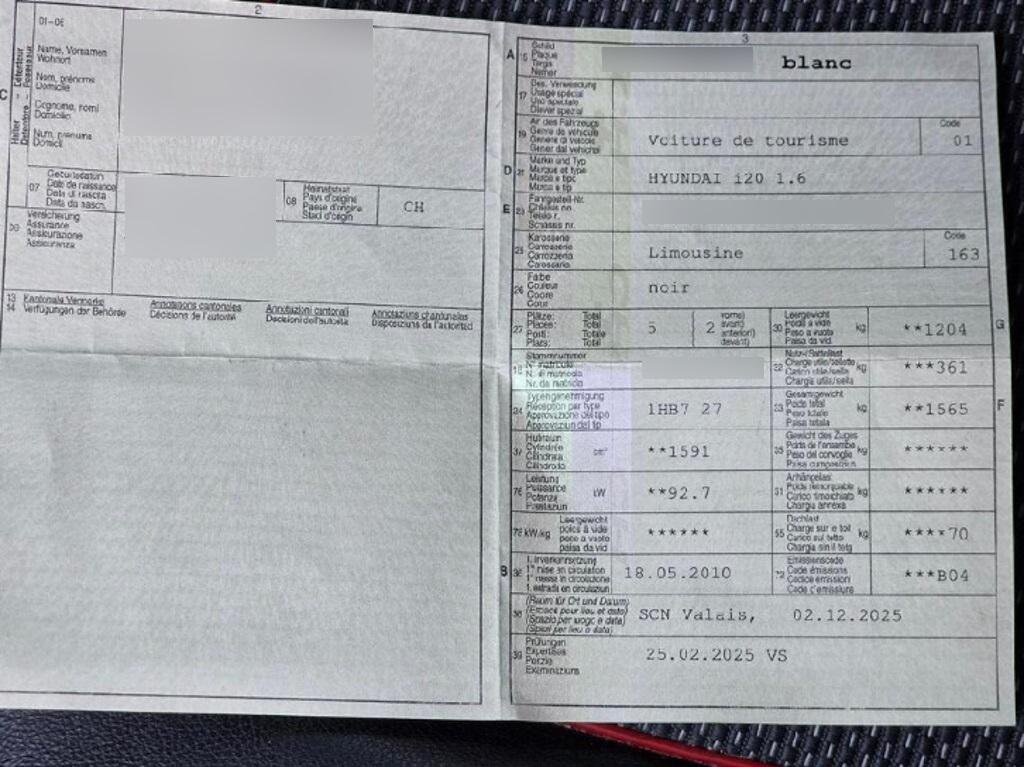 2
01-06
C
Halter
Détenteur
Detentore
Possessur
Name, Vornamen
Wohnort
Nom, prénoms
Domicile
Cognome, nomi
Domicilio
Num, prenums
Domicil
07
Geburtsdatum
Date de naissance
Data di nascita
Data da nasch.
08
Heimatstaat
Pays d'origine
Paese d'origine
Stadi d'origin
CH
09
Versicherung
Assurance
Assicurazione
Assicuranza
13
14
Kantonale Vermerke
Verfügungen der Behörde
Annotations cantonales
Décisions de l'autorité
Annotazioni cantonali
Decisioni dell'autorità
Annotaziuns chantunalas
Disposiziuns da l'autoritad
3
A
15
Schild
Plaque
Targa
Numer
blanc
17
Bes. Verwendung
Usage spécial
Uso speciale
Diever spezial
19
Art des Fahrzeugs
Genre de véhicule
Genere di veicolo
Gener dal vehichel
Voiture de tourisme
Code
01
D
21
Marke und Typ
Marque et type
Marca e tipo
Marca e tip
HYUNDAI i20 1.6
E
23
Fahrgestell-Nr.
Châssis no
Telaio n.
Schassis nr.
25
Karosserie
Carrosserie
Carrozzeria
Carossaria
Limousine
Code
163
26
Farbe
Couleur
Colore
Colur
noir
27
Plätze: Total
Places: Total
Posti: Totale
Plazs: Total
5
2
vorne)
avant)
anteriori)
davant)
30
Leergewicht
Poids à vide
Peso a vuoto
Paisa da vid
kg
**1204
G
18
Stammnummer
N° matricule
N. di matricola
Nr. da matricla
32
Nutz-/Sattellast
Charge utile/sellette
Carico utile/sella
Chargia utila/sella
kg
***361
24
Typengenehmigung
Réception par type
Approvazione del tipo
Approvaziun dal tip
1HB7 27
33
Gesamtgewicht
Poids total
Peso totale
Paisa totala
kg
**1565
F
37
Hubraum
Cylindrée
Cilindrata
Cilindrada
cm³
**1591
35
Gewicht des Zuges
Poids de l'ensemble
Peso del convoglio
Paisa cumposiziun
kg
******
76
Leistung
Puissance
Potenza
Prestaziun
kW
**92.7
31
Anhängelast
Poids remorquable
Carico rimorchiato
Chargia annexa
kg
******
78
kW/kg
Leergewicht
poids à vide
peso a vuoto
paisa da vid
******
55
Dachlast
Charge sur le toit
Carico sul tetto
Chargia sin il tetg
kg
****70
B
36
1. Inverkehrsetzung
1re mise en circulation
1a messa in circolazione
1. entrada en circulaziun
18.05.2010
72
Emissionscode
Code émissions
Codice emissioni
Code d'emissiuns
***B04
38
(Raum für Ort und Datum)
(Espace pour lieu et date)
(Spazio per luogo e data)
(Spazi per lieu e data)
SCN Valais, 02.12.2025
39
Prüfungen
Expertises
Perizie
Examinaziuns
25.02.2025 VS